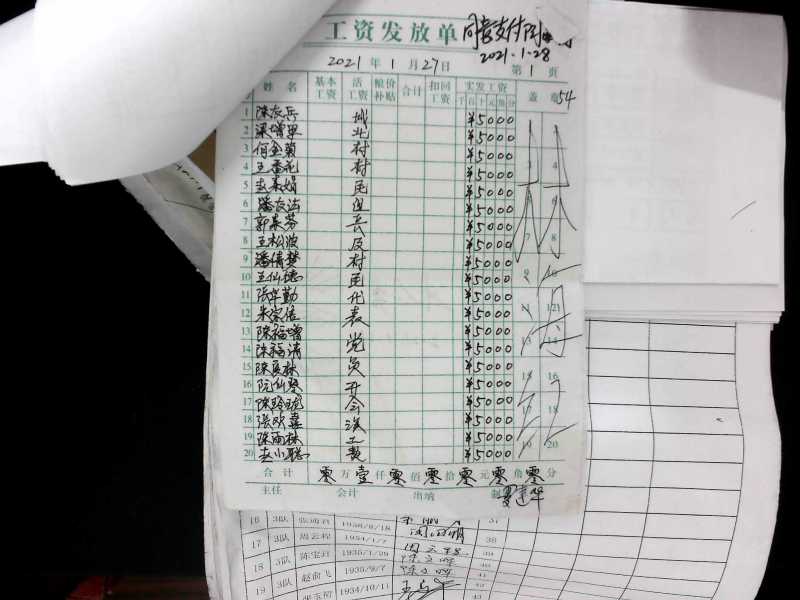 工资发放单 同意支付
2021.1.28
2021 年 1 月 27 日 第 1 页
姓名 基本工资 活工资 粮价补贴 合计 扣回工资 实发工资 盖章 54
千 百 十 元 角 分
1 陈友岳 城 ¥5000
2 梁增果 北 ¥5000
3 何金菊 村 ¥5000
4 王香花 村 ¥5000 3 4
5 赵素娟 民 ¥5000
6 潘友法 ¥5000 6
7 郭素芬 ¥5000
8 王松波 及 ¥5000 7 8
9 潘倩梦 村 ¥5000
10 王仙德 民 ¥5000 9 10
11 张宰勤 代 ¥5000
12 朱家佑 表 ¥5000 12
13 陈福增 党 ¥5000 13 14
14 陈福清 ¥5000
15 陈夏林 员 ¥5000 16
16 阮仙琴 开 ¥5000
17 陈玲珑 会 ¥5000
18 张欢喜 误 ¥5000 18
19 陈雨林 工 ¥5000 19 20
20 赵小聪 费 ¥5000
合计 零万壹仟零佰零拾零元零角零分
主任 会计 出纳 制
16 3队 1936/8/18 37
17 3队 周云程 1934/1/7 38
18 3队 陈宝君 1935/1/29 39
19 3队 赵前飞 1935/9/7 41
1934/10/11